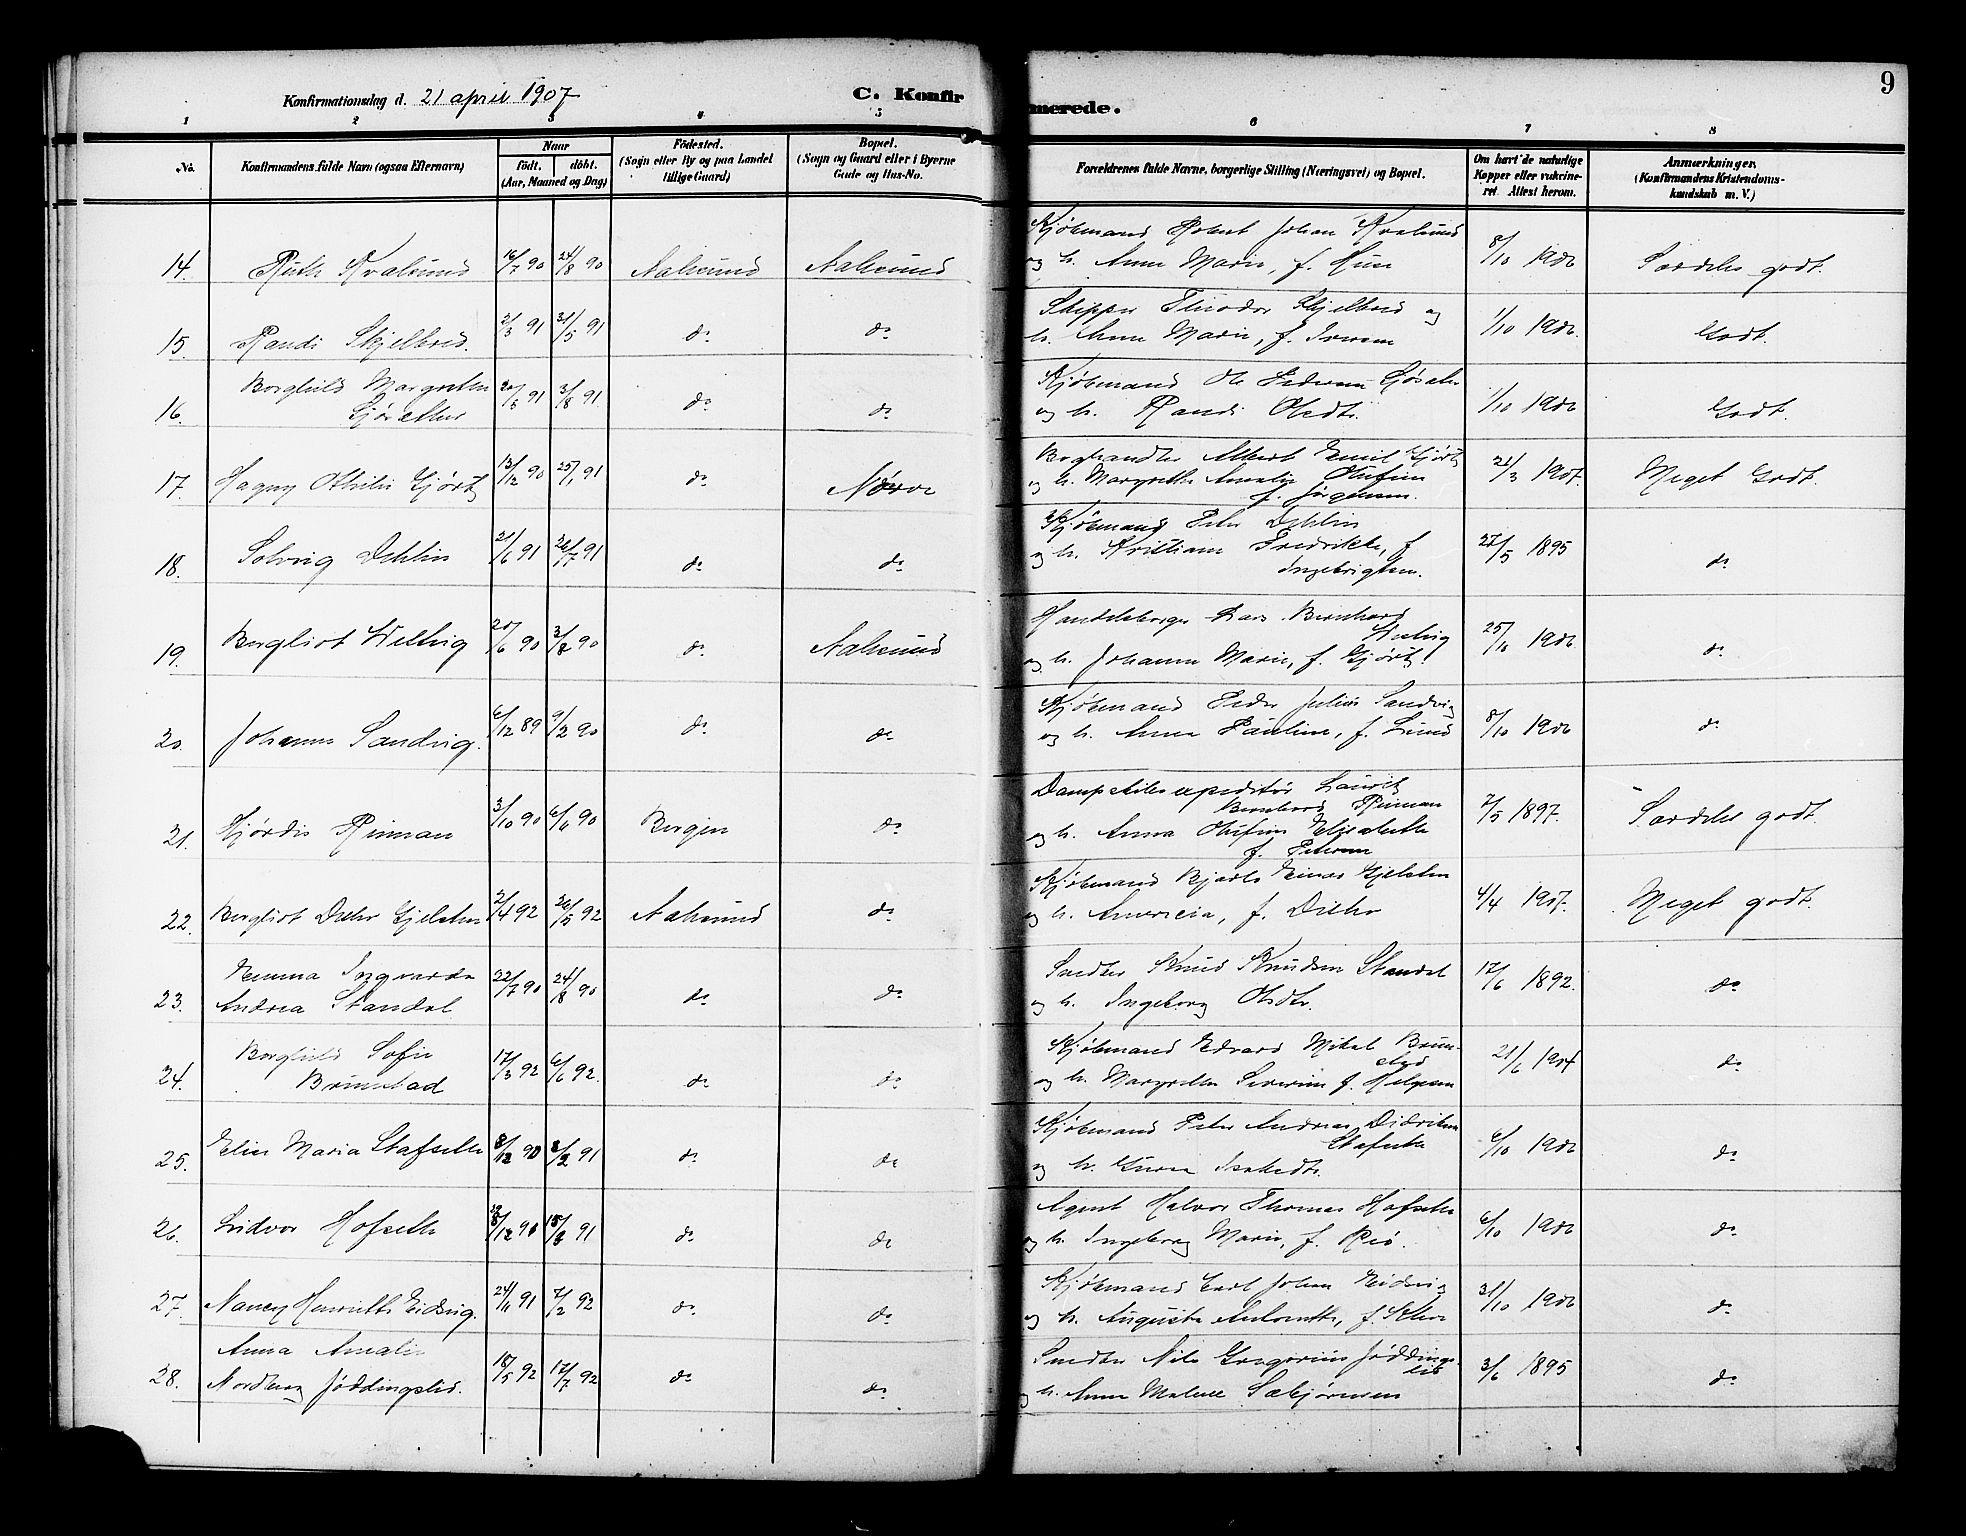 9
Konfirmationsdag d. 21 april 1907 C. Konfirmerede.
1 2 3 4 5 6 7 8
No. Konfirmandens fulde Navn (ogsaa Efternavn) Naar født. døbt. (Aar, Maaned og Dag) Fødested. (Sogn eller By og paa Landet tillige Gaard) Bopæl. (Sogn og Gaard eller i Byerne Gade og Hus-No. Forældrenes fulde Navne, borgerlige Stilling (Næringsvei) og Bopæl. Om havt de naturlige Kopper eller vakcineret Attest herom. Anmærkninger. (Konfirmandens Kristendomskundskab m. V.)
Kjøbmand Robert Johan Kvalsund
14. Ruth Kvalsund 16/7 90 24/8 90 Aalesund Aalesund og h. Anne Marie, f. 8/10 1906 Særdeles godt.
Skipper Theodor Skjelbred og
15. Randi Skjelbred. 2/3 91 31/5 91 do do h. Anne Marie, f. Iversen 1/10 1906. Godt.
Borghild Margrethe Kjøbmand Ole Pedersen
16. 91 3/8 91 do do og h. Randi Olsdtr. 1/10 1906 Godt.
Boghandler Albert Emil Gjørtz
17. Magny Othilie Gjørtz 13/12 90 25/1 91 do Nørve og h. Margrethe Amalie Olufine 21/3 1907. Meget Godt.
f. Jørgensen.
Kjøbmand Peter Dehlin
18. Solveig Dehlin 21/6 91 26/7 91 do do og h. Kristiane Fredrikke, f. 27/5 1895 do
Ingebrigtsen.
Handelsborger Lars Bernhard
19. Bergliot Helvig 20/6 90 3/8 90 do Aalesund Helvig 25/10 1906 do
og h. Johanne Marie, f. Gjørtz.
Kjøbmand Peder Julius Sandvig
20. Johanne Sandvig. 6/12 89 9/2 90 do do og h. Anna Pauline, f. Lund 8/10 1906 do
Dampskibsexpeditør Lauritz
Bernhard Rinnan
21. Hjørdis Rinnan 3/10 90 6/11 90 Bergen do og h. Anna Olufine Elisabeth 7/5 1897. Særdeles godt.
f. Petersen
Kjøbmand Bjarte Einar Gjelsten
22. Bergliot Dehr Gjelsten 2/4 92 26/5 92 Aalesund do og h. 4/4 1907. Meget godt.
Emma Ingvarda Snedker Knud Knudsen Standal
23. Andrea Standal 22/7 90 24/8 90 do do og h. Ingeborg Olsdtr. 17/6 1892. do
Borghild Sofie Kjøbmand Edvard Mikal Brunstad
24. Brunstad 17/3 92 6/6 92. do do og h. Margrethe Severine f. Helgesen 21/6 1904 do
Kjøbmand Peter Andreas Didriksen
Stafseth
25. Elise Maria Stafseth 8/12 90 8/2 91 do do og h. Gurine Isaksdtr. 6/10 1906 do
Agent Halvor Thomas Hofseth
26. Lidvor Hofseth 28/12 90 15/3 91 do do og h. Ingeborg Marie, f. Risø. 6/10 1906 do
Kjøbmand Carl Johan Eidsvig
27. Nancy Henriette Eidsvig. 24/11 91 7/2 92 do do og h. Augusta Antonette, f. 31/10 1906 do
Anna Amalie Snedker Nils Gregorius Jøddingslid
28. Nordberg Jøddingslid. 18/5 92 17/7 92 do do og h. Anne Malene Sæbjørnsen 3/6 1895 do